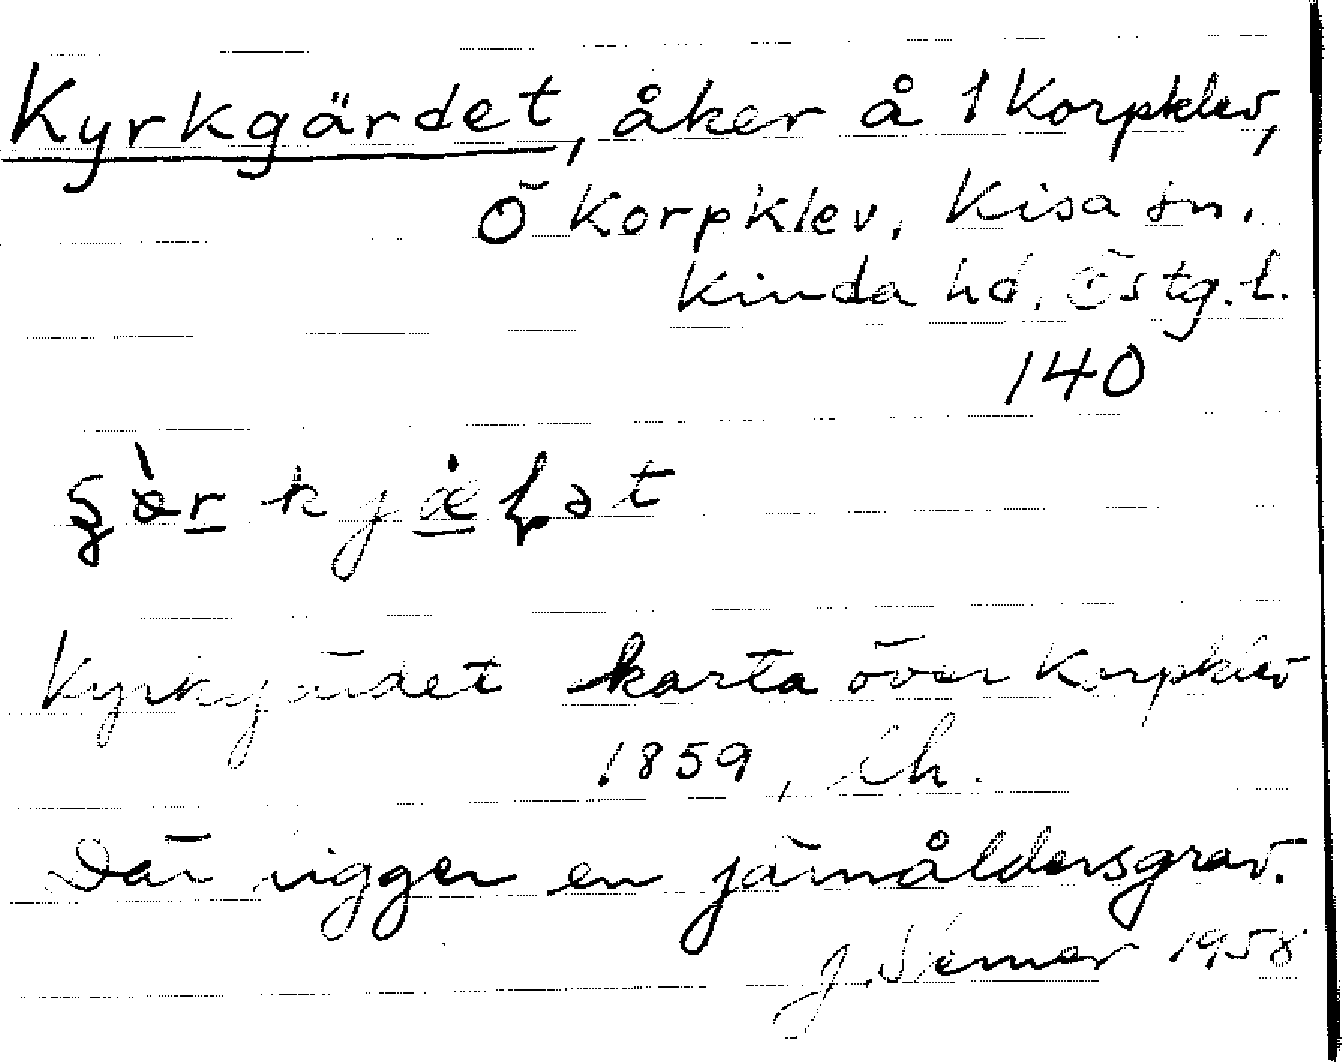 Kyrkgärdet, åker å 1 Korpklev,
Ö Korpklev, Kisa sn.
Kinda hd, Östg. l.
140
Kyrkgärdet karta över Korpklev
1859, ih.
Där ligger en järnåldersgrav.
1958